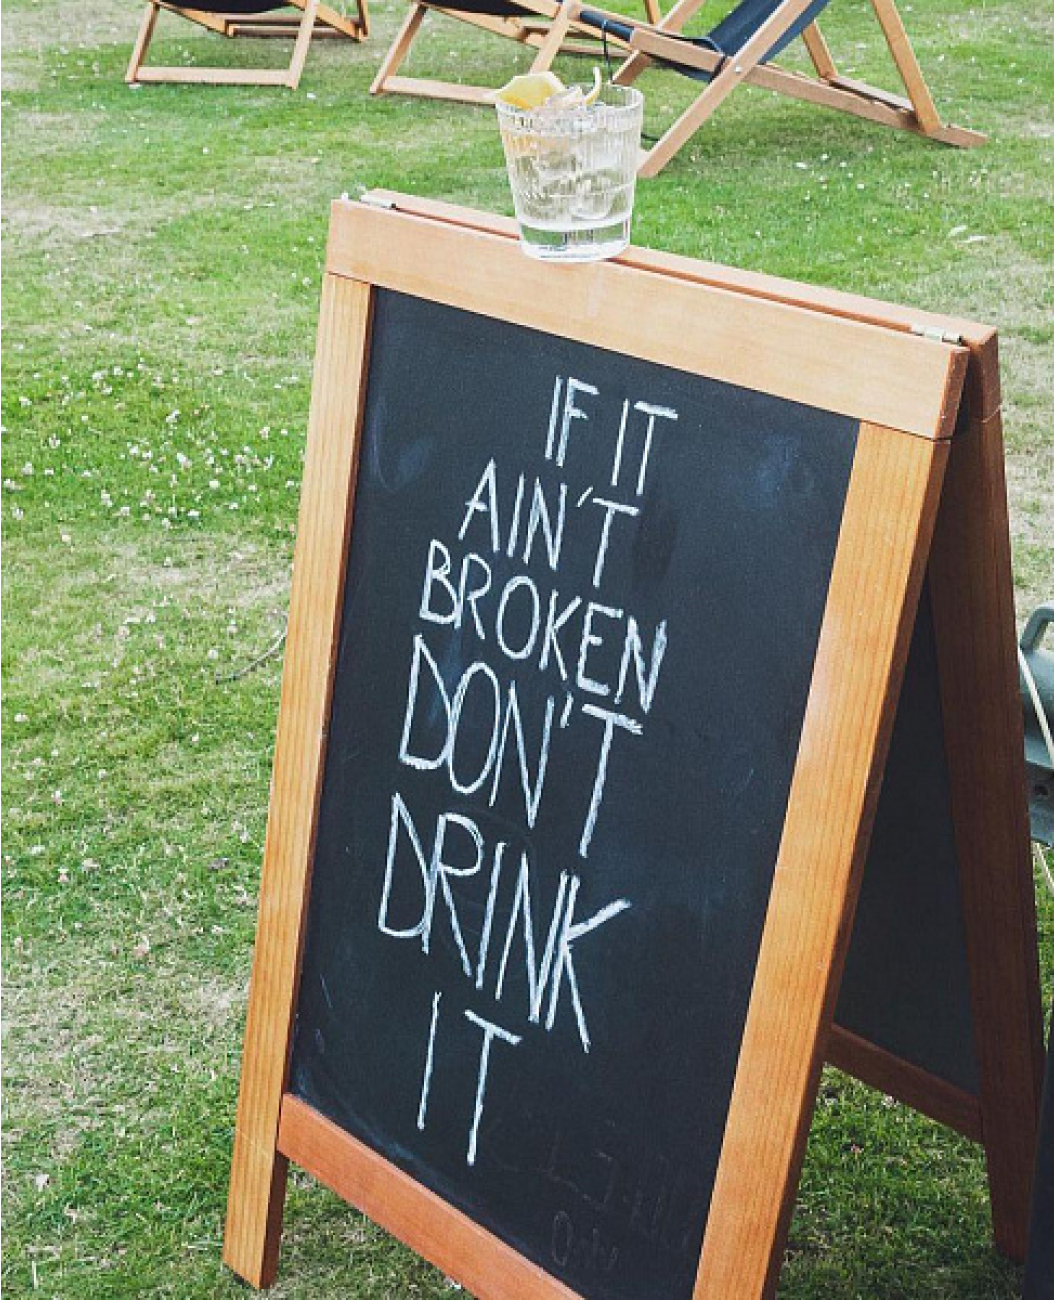 IF IT
AIN'T
BROKEN
DON'T
DRINK
IT